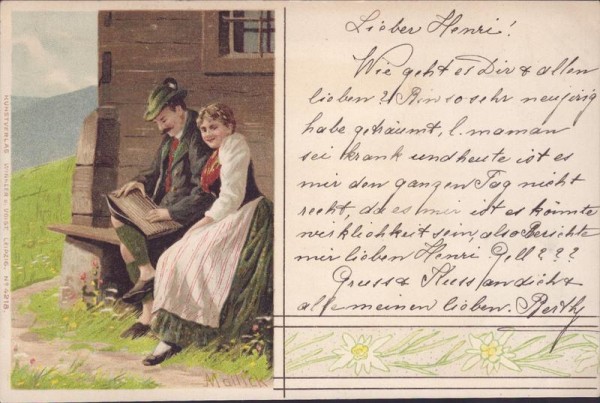 Lieber Henri!
Wie geht es Dir & allen
lieben? Bin so sehr neugirig
habe geträumt, l. maman
sei krank und heute ist es
mir den ganzen Tag nicht
recht, da es mir ist es könnte
wirklichkeit sein, also Berichte
mir lieben Henri. Gell???
Gruss & Kuss an dich &
alle meinen lieben. Berthy
KUNSTVERLAG WINKLER & VOIGT LEIPZIG. No 4218
Mailick